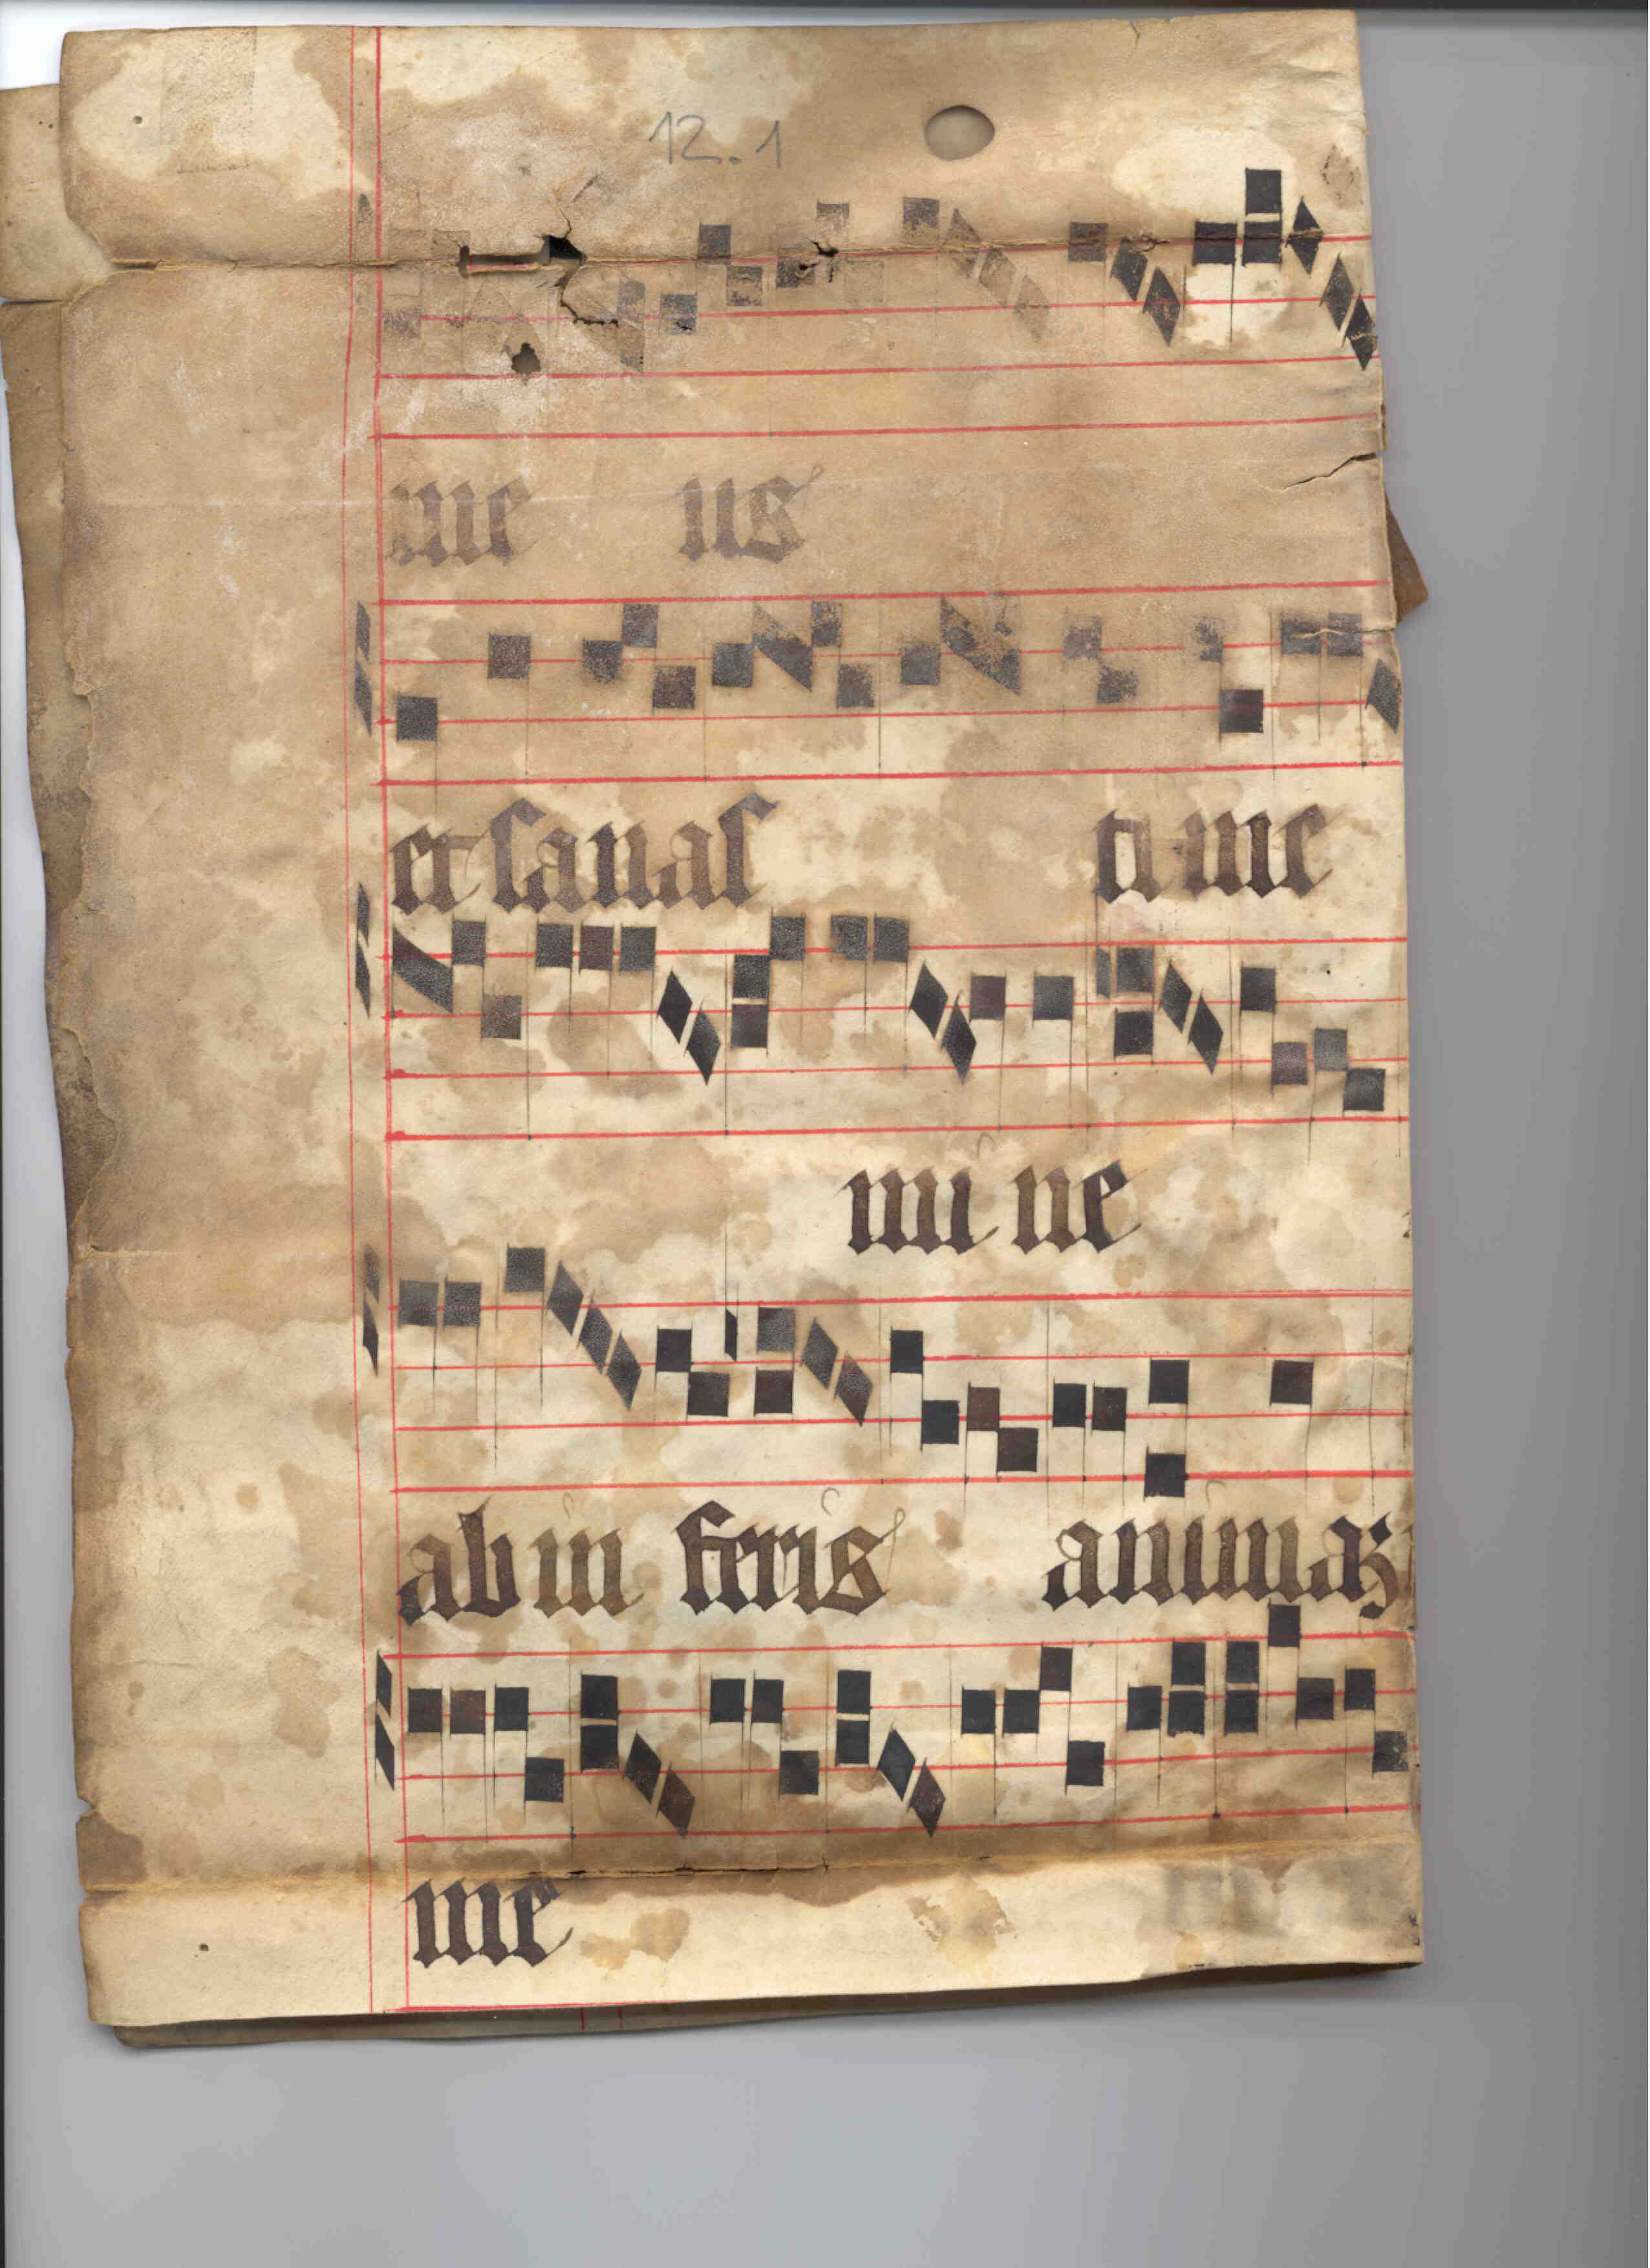 12.1
me us
et sanas ti me
mi ne
ab in feris animaʒ
me